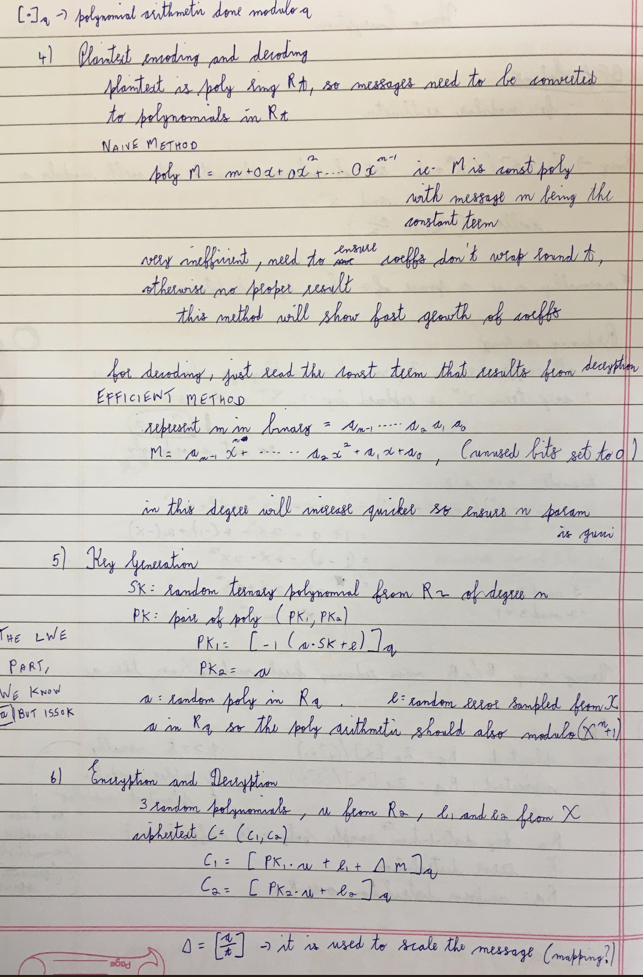 [·]q → polynomial arithmetic done modulo q
4) Plaintext encoding and decoding
plaintext is poly ring Rt, so messages need to be converted
to polynomials in Rt
NAIVE METHOD
poly M = m + 0x + 0x² + .... 0x^(n-1) ie- M is const poly
with message m being the
constant term
very inefficient, need to ensure coeffs don't wrap round t,
otherwise no proper result
this method will show fast growth of coeffs
for decoding, just read the const term that results from decryption
EFFICIENT METHOD
represent m in binary = a_(n-1) ..... a₂ a₁ a₀
M = a_(n-1) x^n + ...... a₂x² + a₁x + a₀, (unused bits set to 0)
in this degree will increase quicker so ensure n param
is
5) Key Generation
SK: random ternary polynomial from R₂ of degree n
PK: pair of poly (PK₁, PK₂)
THE LWE
PK₁ = [-1 (a·SK + e)]q
PART,
PK₂ = a
WE KNOW
a = random poly in Rq . e = random error sampled from X
a BUT ISSOK
a in Rq so the poly arithmetic should also modulo (X^n+1)
6) Encryption and Decryption
3 random polynomials, u from R₂, e₁ and e₂ from X
ciphertext C = (C₁, C₂)
C₁ = [PK₁·u + e₁ + Δ M]q
C₂ = [PK₂·u + e₂]q
Δ = [q/t] → it is used to scale the message (mapping?)
Page